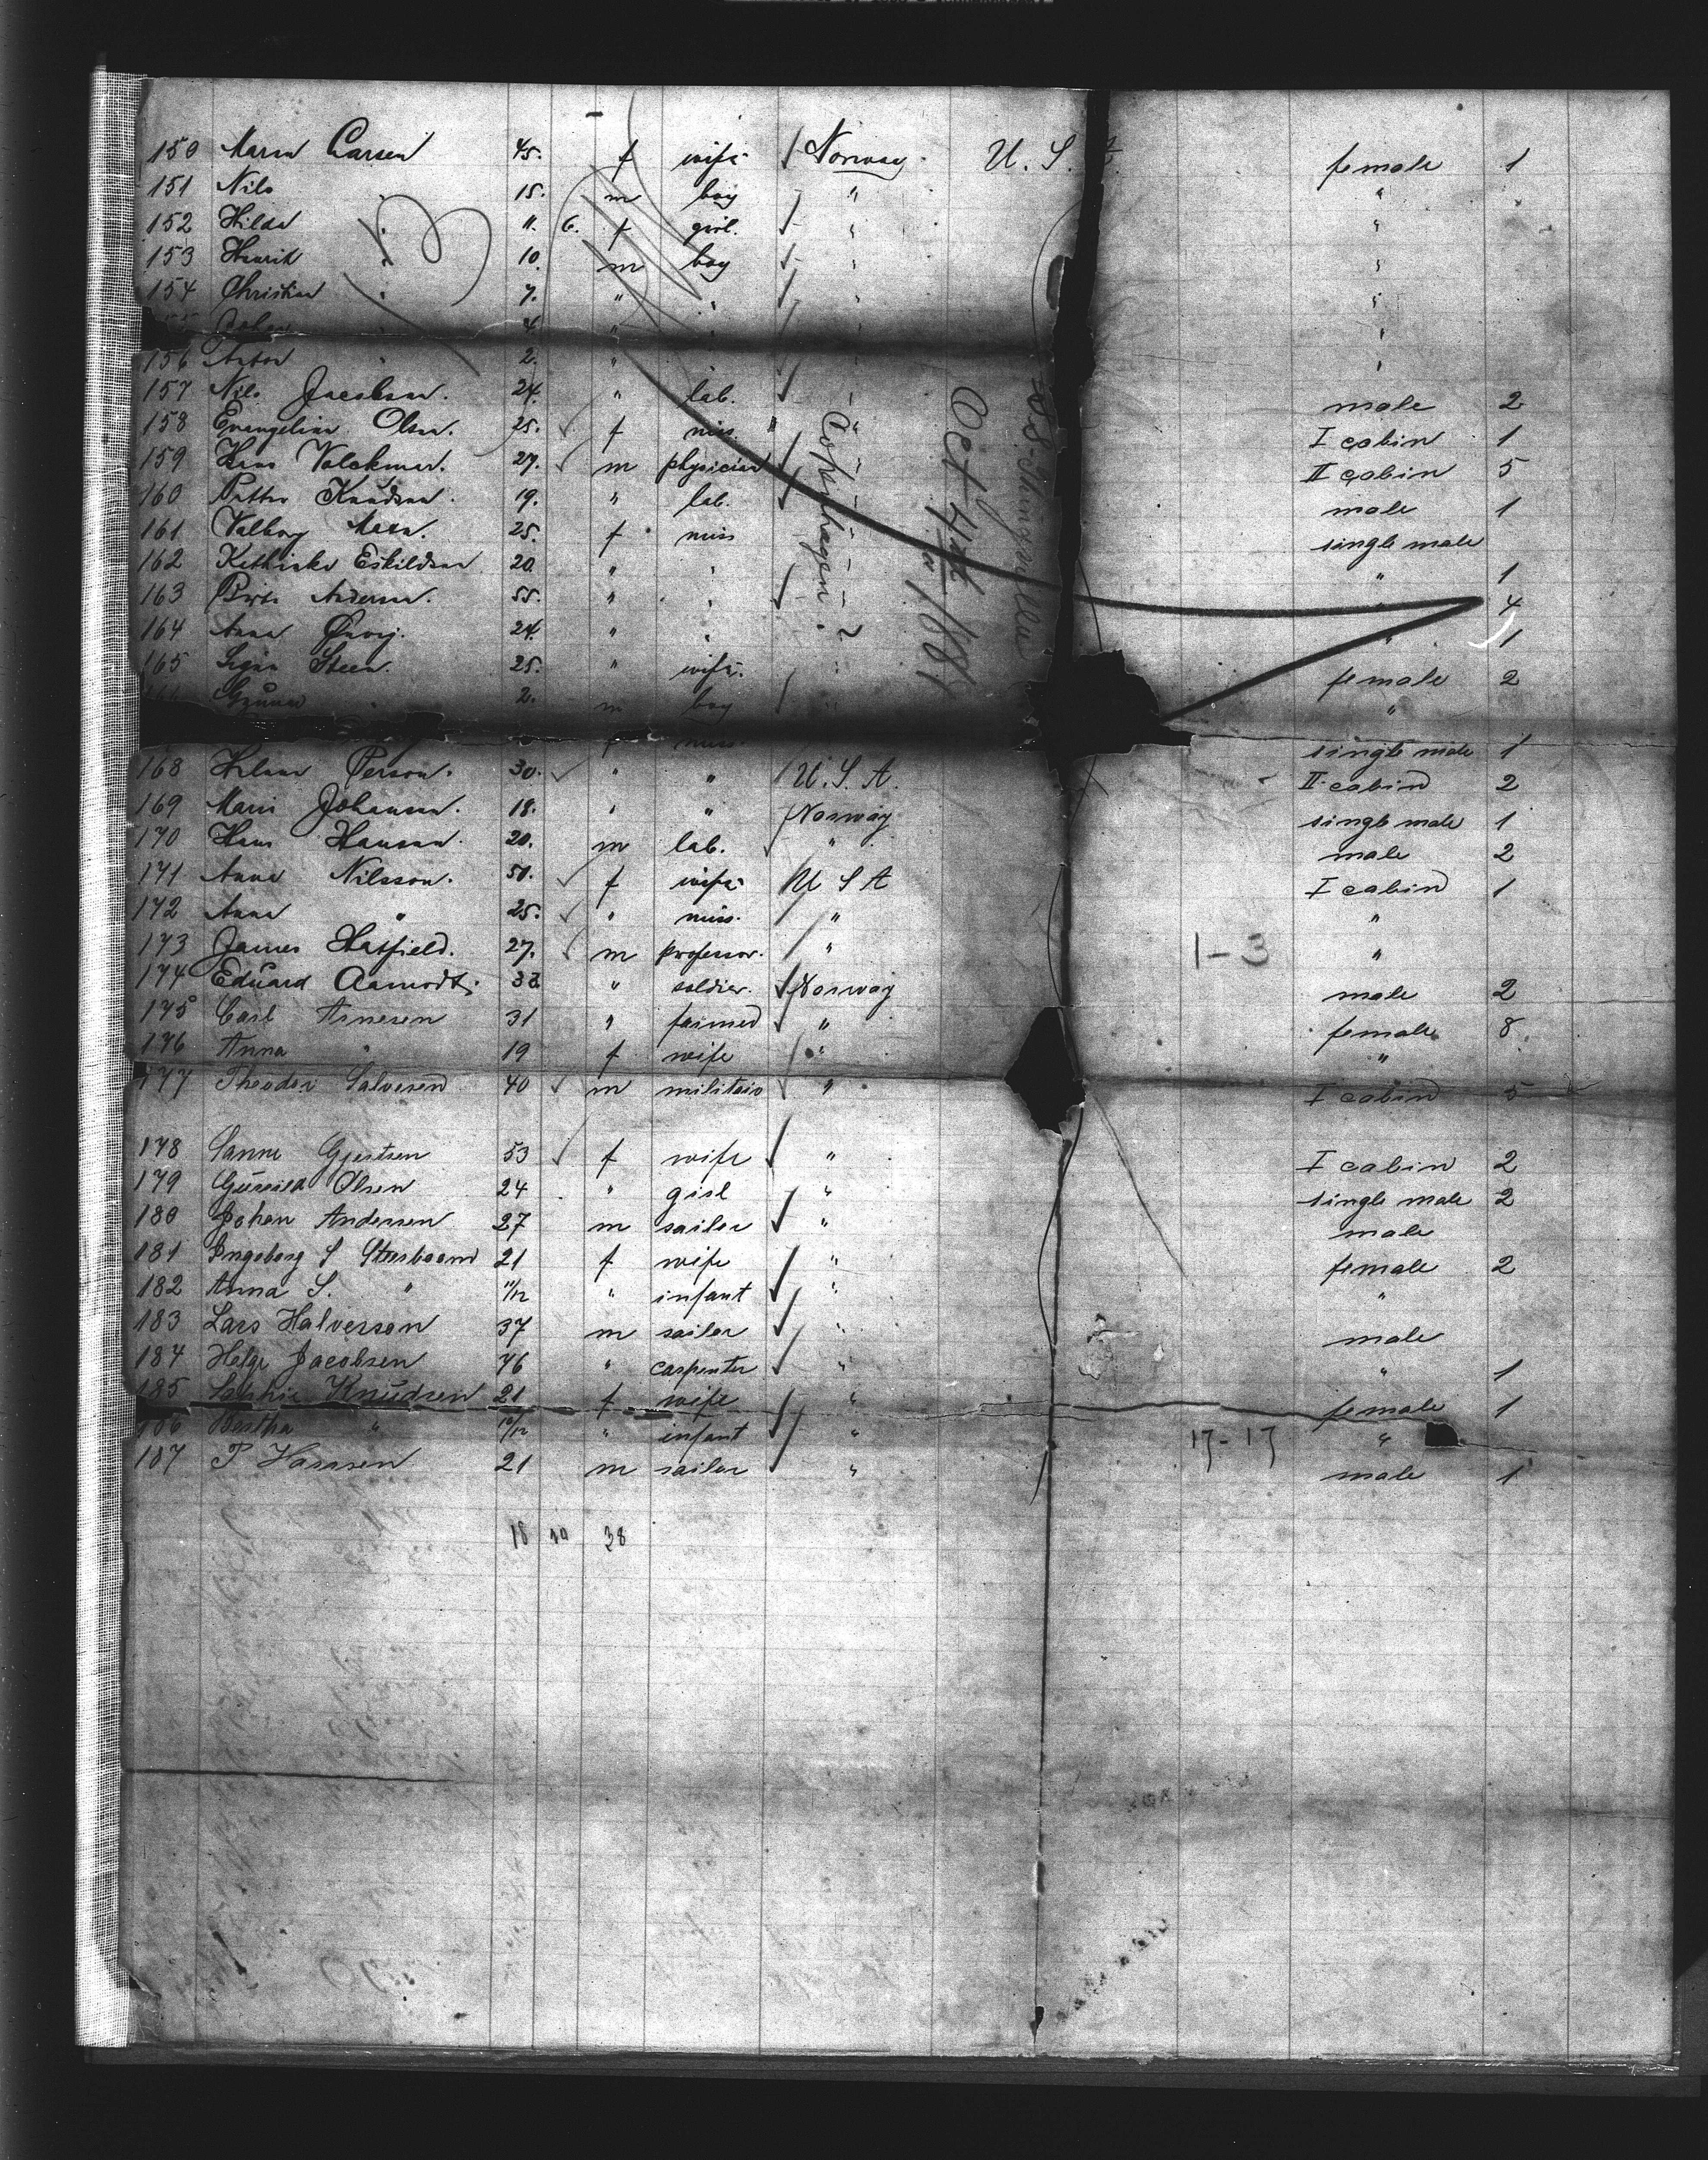 150 Maren Larsen 45. f wife Norway. U. S. A. female 1
151 Nils " 15. m boy " "
152 Hilda " 11. 6. f girl. " "
153 Henrik " 10. m boy " "
154 Christian " 7. " " " "
Johan " 4. " " "
156 Anton " 2. " "
157 Nils Jacobsen. 24. " lab. male 2
158 Evangeline Olsen. 25. f miss. " I cabin 1
159 Hans Volckmar. 27. m physician II cabin 5
160 Petter Knudsen. 19. " lab. male 1
161 Valborg 25. f miss single male
162 Kathinka Eskildsen 20. " " " 1
163 Andersen. 55. " " " 4
164 Anna 24. " " " 1
165 Signe Steen. 25. " wife. female 2
Gunnar " 2. m boy "
f miss. single male 1
168 Helena Person. 30. " " U. S. A. II cabin 2
169 Marie Johansen. 18. " " Norway single male 1
170 Hans Hansen. 20. m lab. " male 2
171 Anna Nilsson. 50. f wife U S A I cabin 1
172 Anna " 25. " miss. " "
173 James Hatfield. 27. m professor. " 1-3 "
174 Eduard Aamodt. 33 " soldier. Norway male 2
175 Carl Arnesen 31 " farmed " female 8
176 Anna " 19 f wife " "
177 Theodor Salvesen 40 m militair " I cabin 5
178 Sanne Gjertsen 53 f wife " I cabin 2
179 Olsen 24 " girl " single male 2
180 Johan Andersen 27 m sailor " male
181 Ingeborg S 21 f wife " female 2
182 Anna S. " 11/12 " infant " "
183 Lars Halversen 37 m sailor " male
184 Helge Jacobsen 46 " carpenter " " 1
185 Sophie Knudsen 21 f wife " female 1
186 Bertha " 10/12 " infant " 17-17 "
187 P Hansen 21 m sailor " male 1
18 38
Copenhagen?
Oct 4th 1881
Thingvalla